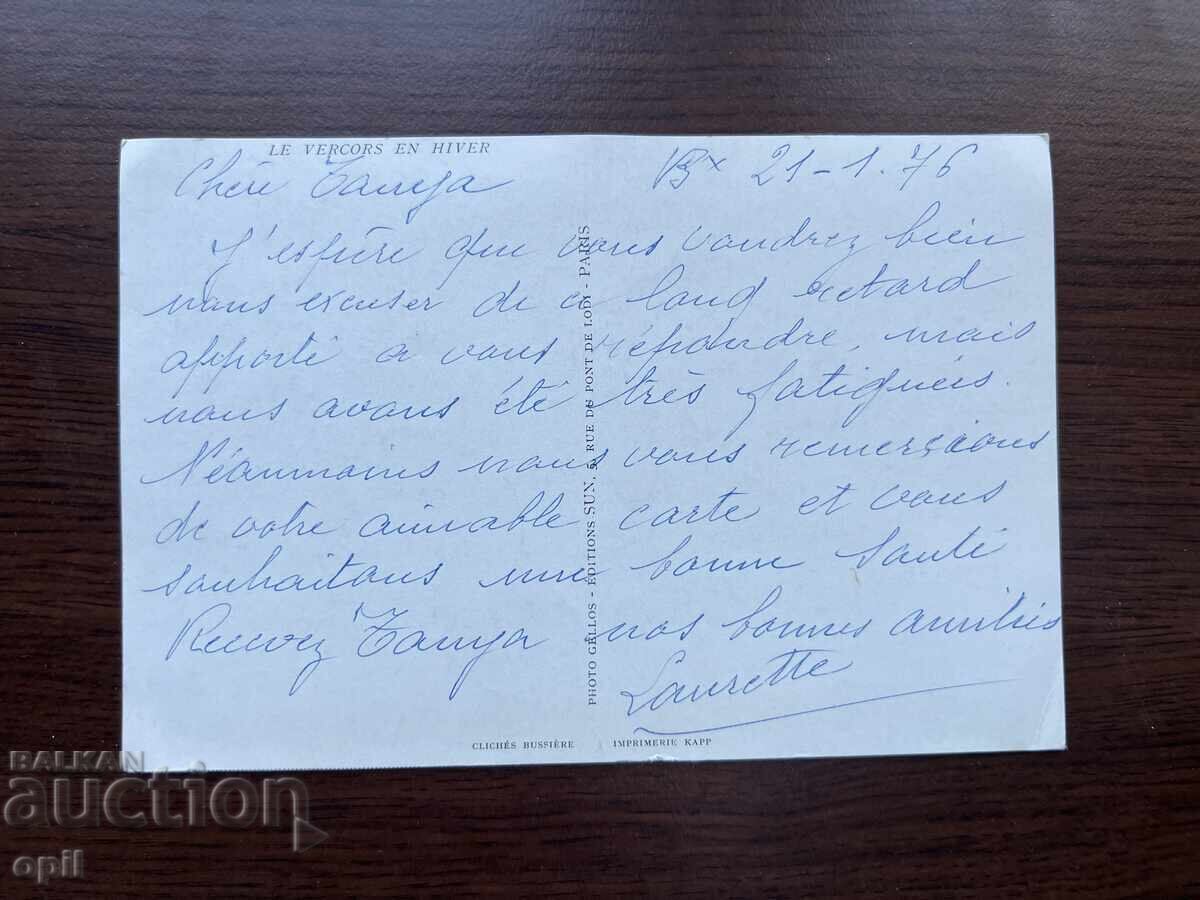 LE VERCORS EN HIVER
Bx 21-1.76
Chère Tanya
J'espère que vous voudrez bien
nous excuser de ce long retard
apporté à vous répondre, mais
nous avons été très fatigués.
Néanmoins nous vous remerçions
de votre aimable carte et vous
souhaitons une bonne santé
Recevez Tanya nos bonnes amitiés
Laurette
PHOTO GELLOS - ÉDITIONS SUN, 5, RUE DU PONT DE LODI - PARIS
CLICHÉS BUSSIÈRE IMPRIMERIE KAPP
BALKAN
auction
opil